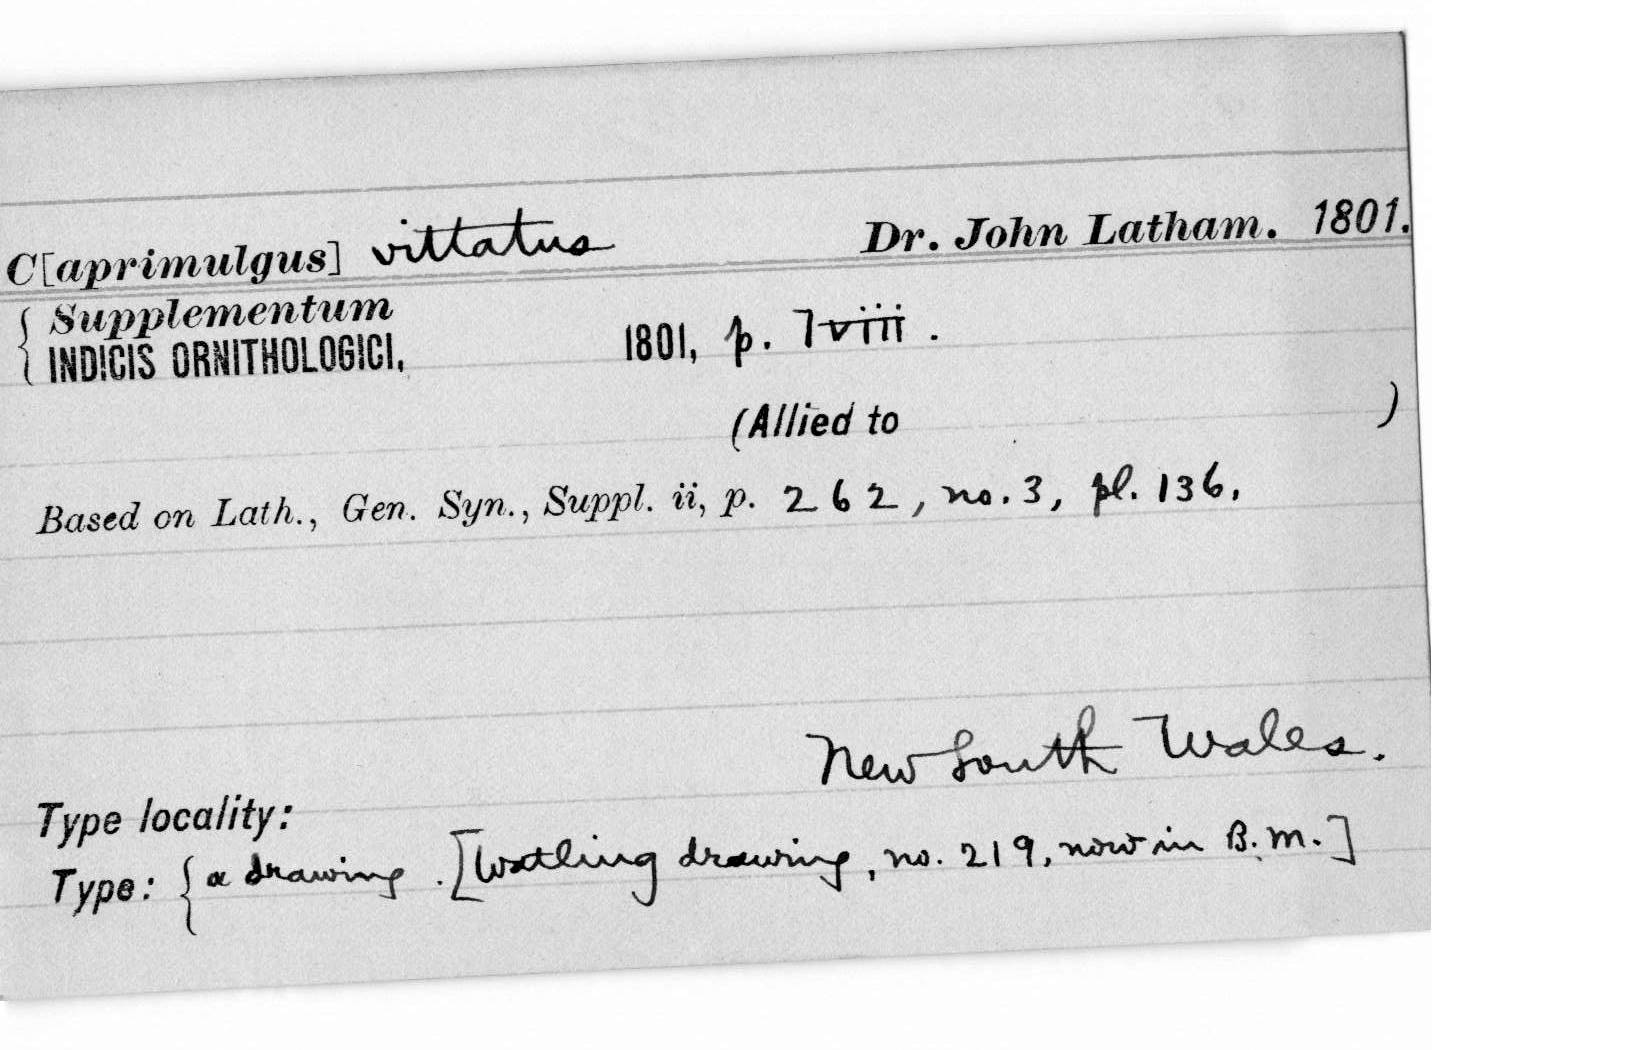 C[aprimulgus] vittatus Dr. John Latham. 1801.
{ Supplementum
INDICIS ORNITHOLOGICI, 1801, p. lviii.
(Allied to )
Based on Lath., Gen. Syn., Suppl. ii, p. 262, no. 3, pl. 136.
New South Wales.
Type locality:
Type: { a drawing. [Watling drawing, no. 219, now in B.M.]